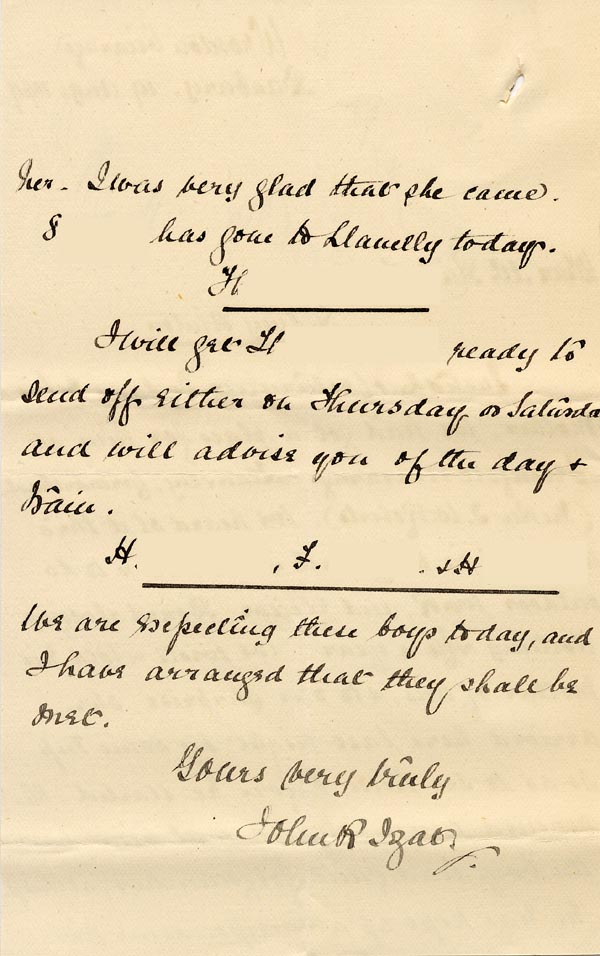 her. I was very glad that she came.
S has gone to Llanelly today.
H
I will get H ready to
send off either on Thursday or Saturda
and will advise you of the day &
train.
H. , F. . & H
We are expecting these boys today, and
I have arranged that they shall be
met.
Yours very truly
John R Izat